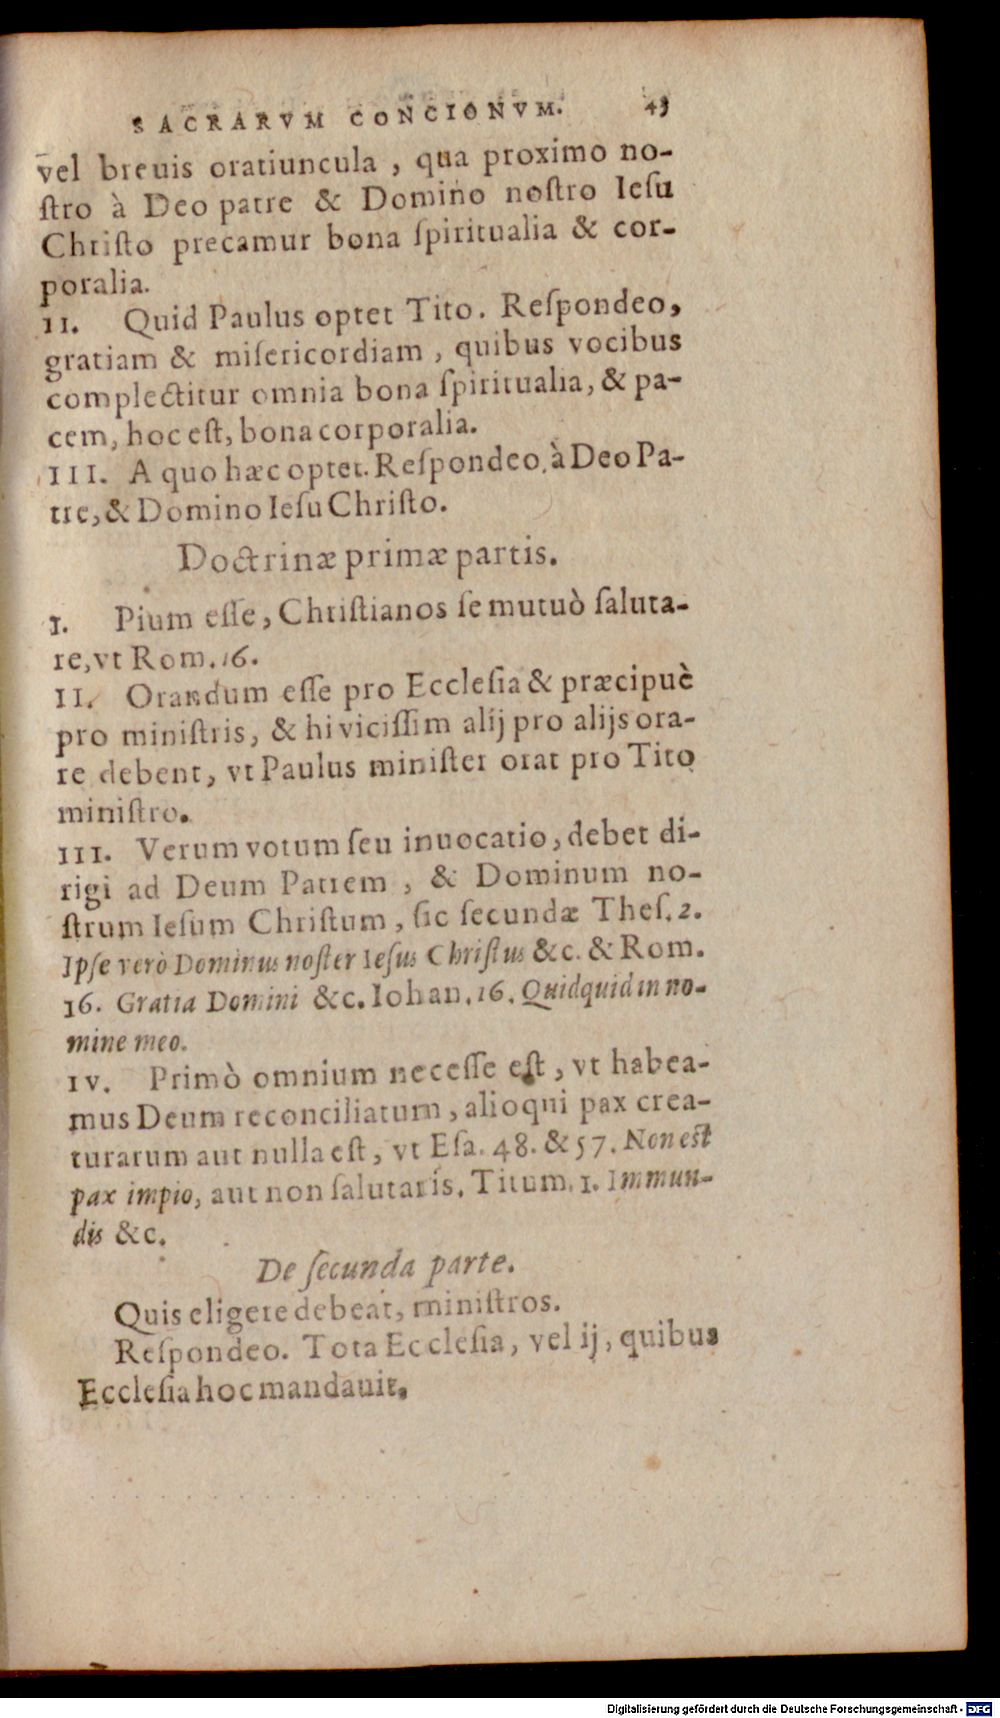 SACRARVM CONCIONVM. 43
vel breuis oratiuncula, qua proximo no-
ſtro à Deo patre & Domino noſtro Ieſu
Chriſto precamur bona ſpiritualia & cor-
poralia.
II. Quid Paulus optet Tito. Reſpondeo,
gratiam & miſericordiam, quibus vocibus
complectitur omnia bona ſpiritualia, & pa-
cem, hoc eſt, bona corporalia.
III. A quo hæc optet. Reſpondeo, à Deo Pa-
tre, & Domino Ieſu Chriſto.
Doctrinæ primæ partis.
I. Pium eſſe, Chriſtianos ſe mutuò ſaluta-
re, vt Rom. 16.
II. Orandum eſſe pro Eccleſia & præcipuè
pro miniſtris, & hi viciſſim alij pro alijs ora-
re debent, vt Paulus miniſter orat pro Tito
miniſtro.
III. Verum votum ſeu inuocatio, debet di-
rigi ad Deum Patrem, & Dominum no-
ſtrum Ieſum Chriſtum, ſic ſecundæ Theſ. 2.
Ipſe verò Dominus noſter Ieſus Chriſtus &c. & Rom.
16. Gratia Domini &c. Iohan. 16. Quidquid in no-
mine meo.
IV. Primò omnium neceſſe eſt, vt habea-
mus Deum reconciliatum, alioqui pax crea-
turarum aut nulla eſt, vt Eſa. 48. & 57. Non eſt
pax impio, aut non ſalutaris. Titum. 1. Immun-
dis &c.
De ſecunda parte.
Quis eligere debeat, miniſtros.
Reſpondeo. Tota Eccleſia, vel ij, quibus
Eccleſia hoc mandauit.
Digitalisierung gefördert durch die Deutsche Forschungsgemeinschaft - DFG